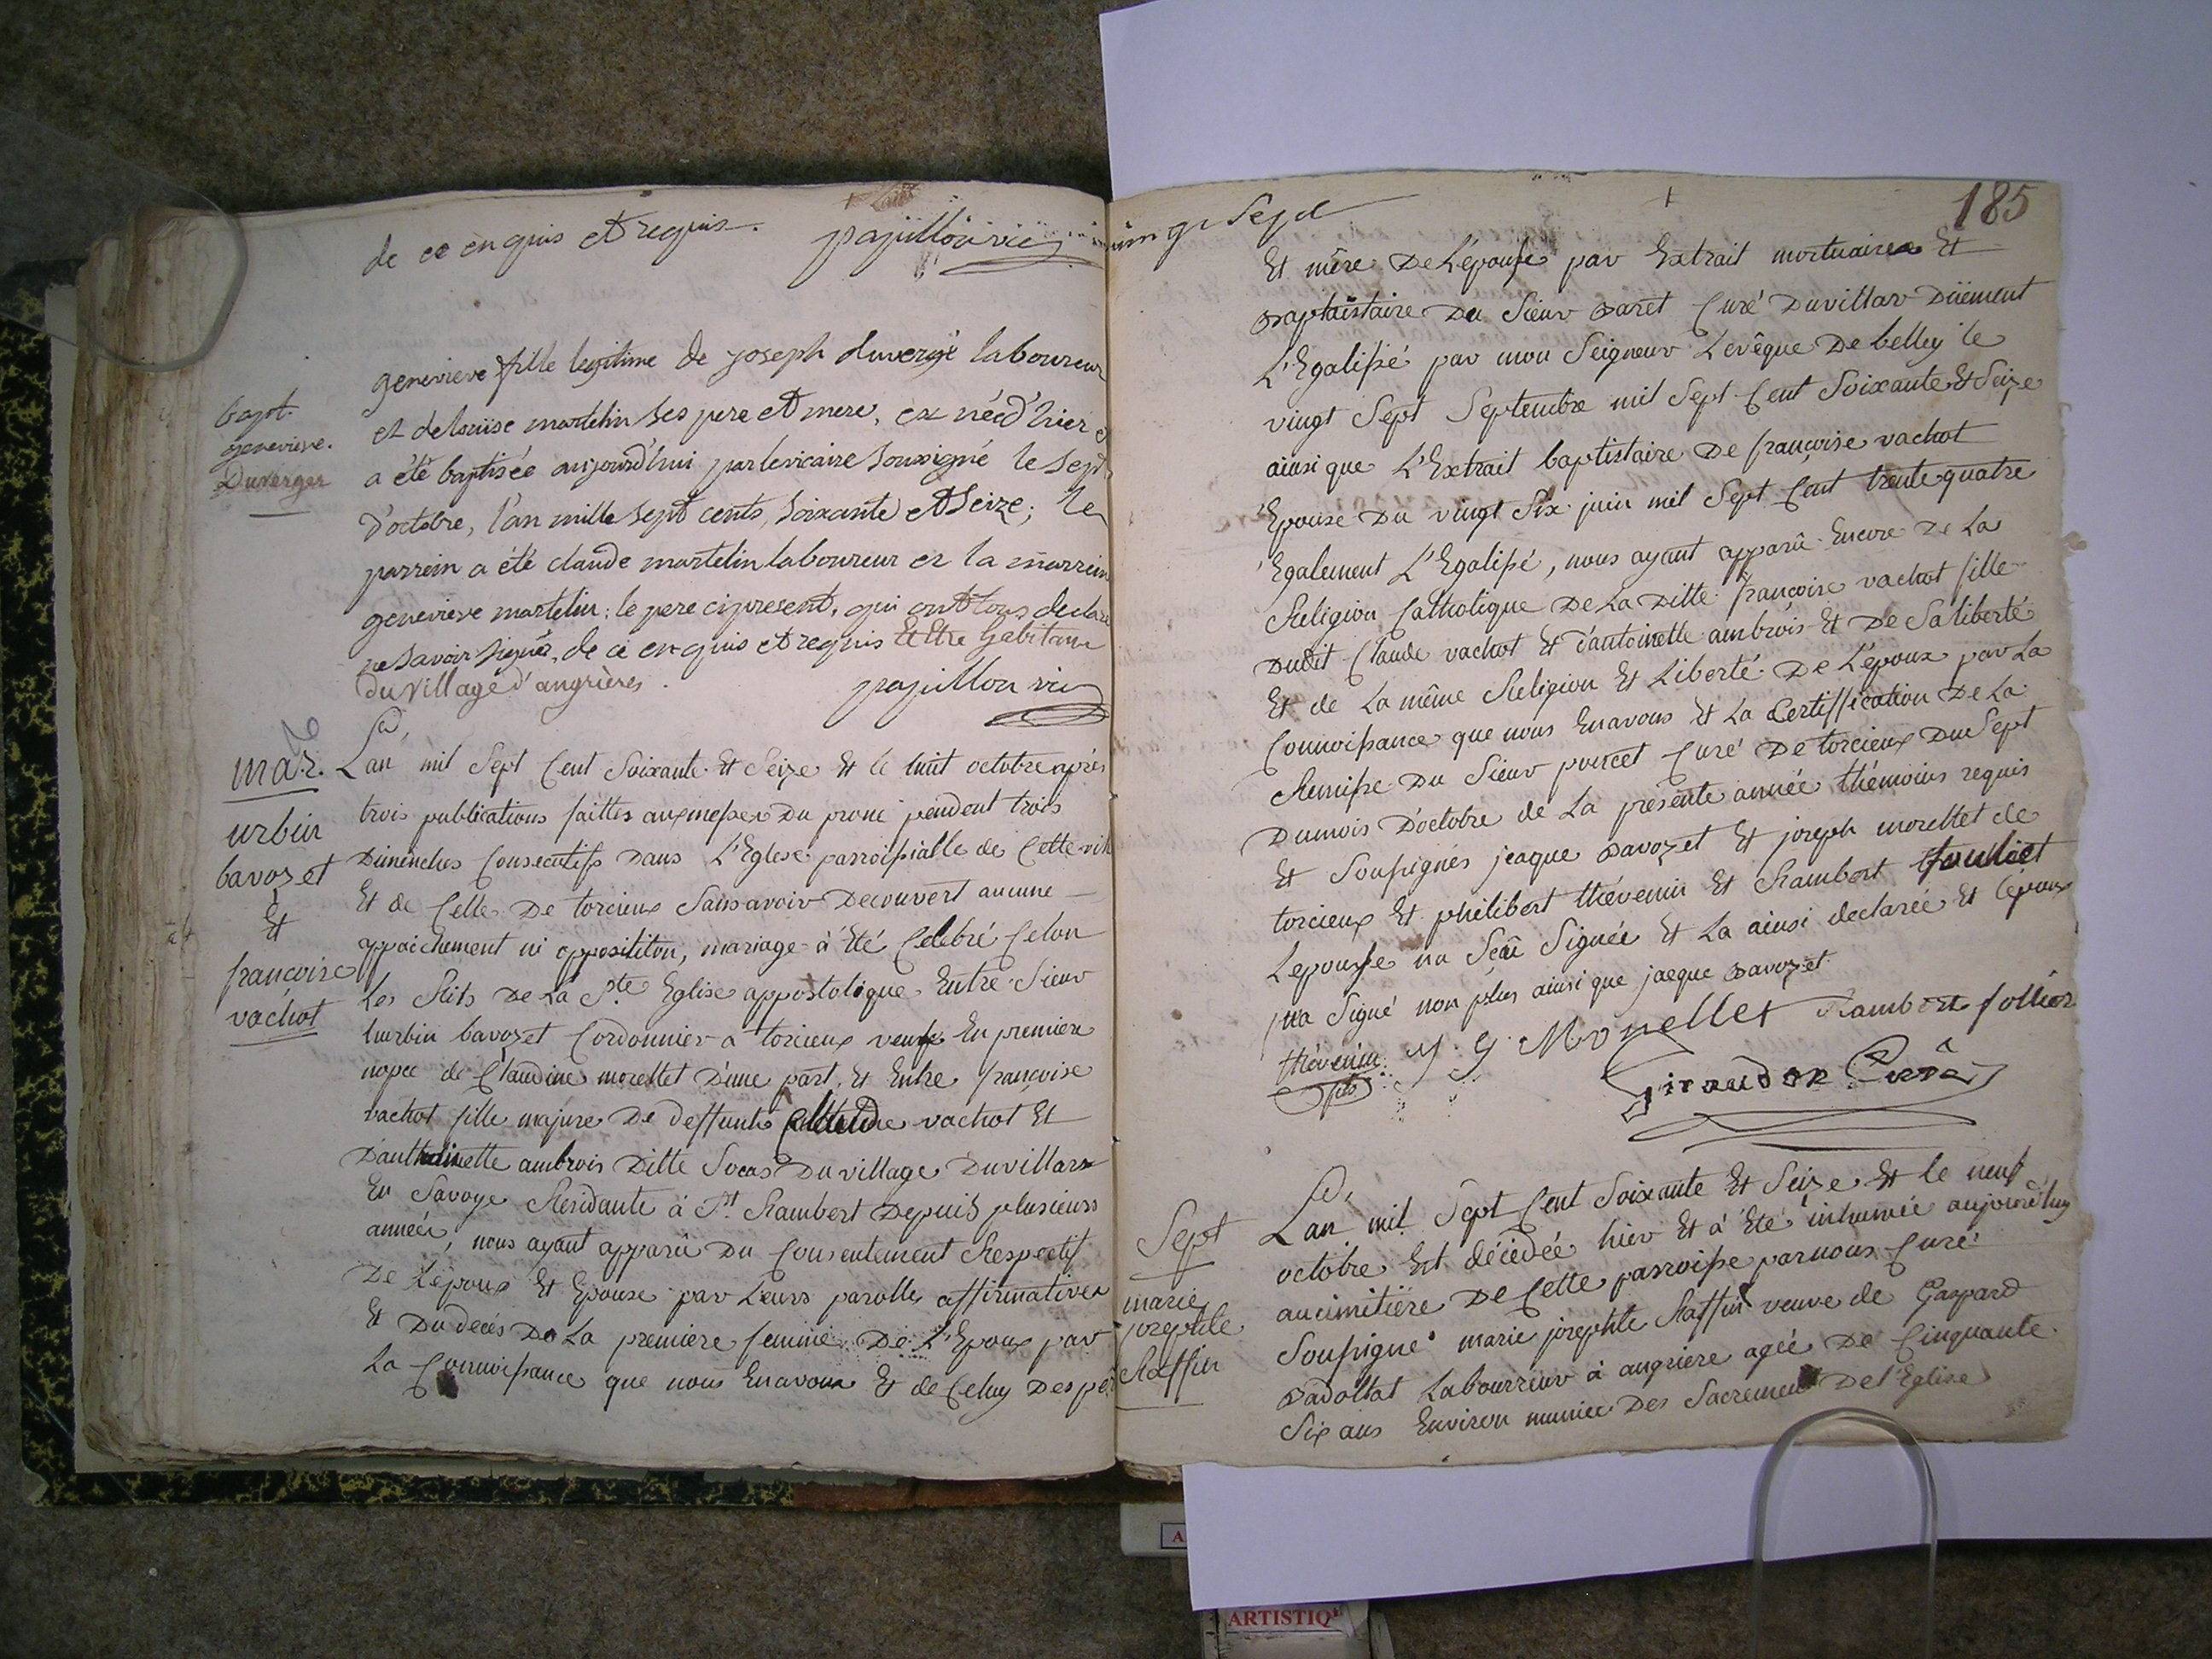 de ce enquis et requis. papillon vic
bapt.
genevieve.
Duverger
genevieve fille legitime de joseph duvergé laboureur
et de louise martelin ses pere et mere, est née d'hier et
a été baptisée aujourd'hui par le vicaire soussigné le sept
d'octobre, l'an mille sept cents, soixante et seize; le
parrein a été claude martelin laboureur et la marreine
genevieve martelin; le pere cipresent, qui ont tous declaré
ne savoir signer, de ce enquis et requis Et Etre habitant
du village d'angrières. papillon vic
mar.
urbin
bavozet
Et
francoise
vachot
Lan mil Sept Cent Soixante Et Seize Et le huit octobre après
trois publications faittes aux messes Du prone pendent trois
Dimenches Consecutifs Dans L'Eglese parroissialle de Cette ville
Et de Celle De torcieux Sans avoir Decouvert aucune
appaichement ni opposititon, mariage à Eté Celebré Celon
Les Rits De La Ste Eglise appostolique Entre Sieur
hurbin bavozet Cordonnier a torcieux veufe En premiere
nopce de Claudine morellet D'une part, Et Entre francoise
vachot fille majure De deffunts Claude vachot Et
D'anthoinette ambrois Ditte Socas Du village Duvillars
En Savoye Residante à St Rambert Depuis plusieurs
années, nous ayant apparu Du Consentement Respectif
De L'époux Et Epouse par Leurs parolles affirmatives
Et Du decés De La premiere femme De L'Epoux par
La Connoissance que nous Enavons Et de Celuy Des pere
vingt Sept
185
Et mère De L'épouse par Extrait mortuaires Et
Baptaistaire Du Sieur Baret Curé Duvillar Düement
L'Egalisé par mon Seigneur L'evêque De belley le
vingt Sept Septembre mil Sept Cent Soixante Et Seize
ainsi que L'Extrait baptistaire De françoise vachot
Epouse Du vingt Six juin mil Sept Cent trente quatre
Egalement L'Egalisé, nous ayant apparû Encore De La
Religion Catholique De La Ditte françoise vachot fille
Dudit Claude vachot Et d'antoinette ambrois Et De Sa liberté
Et de La même Religion Et Liberté De L'époux par La
Connoissance que nous Enavons Et La Certiffication De La
Remise Du Sieur poncet Curé De torcieux Du Sept
Dumois D'octobre de La présente année, thémoins requis
Et Soussignés jeaque Bavozet Et joseph morellet de
torcieux Et philibert thévenin Et Rambert foulliet
Lepousse na Scû Signée Et La ainsi declarée Et L'époux
na Signé non plus ainsi que jaeque Bavozet
thévenin fils J. Morellet Rambert follier
Giraudon Curé
Sept
marie
josephte
Raffin
Lan mil Sept Cent Soixante Et Seize Et le neuf
octobre Est décédée hier Et à Eté inhumée aujourd'huy
au cimitière De Cette parroisse par nous Curé
Soussigné marie josephte Raffin veuve de Gaspard
Badollat Labourreur à angriere agée De Cinquante
Six ans Environ muniee Des Sacrement De l'Eglise
ARTISTIQ